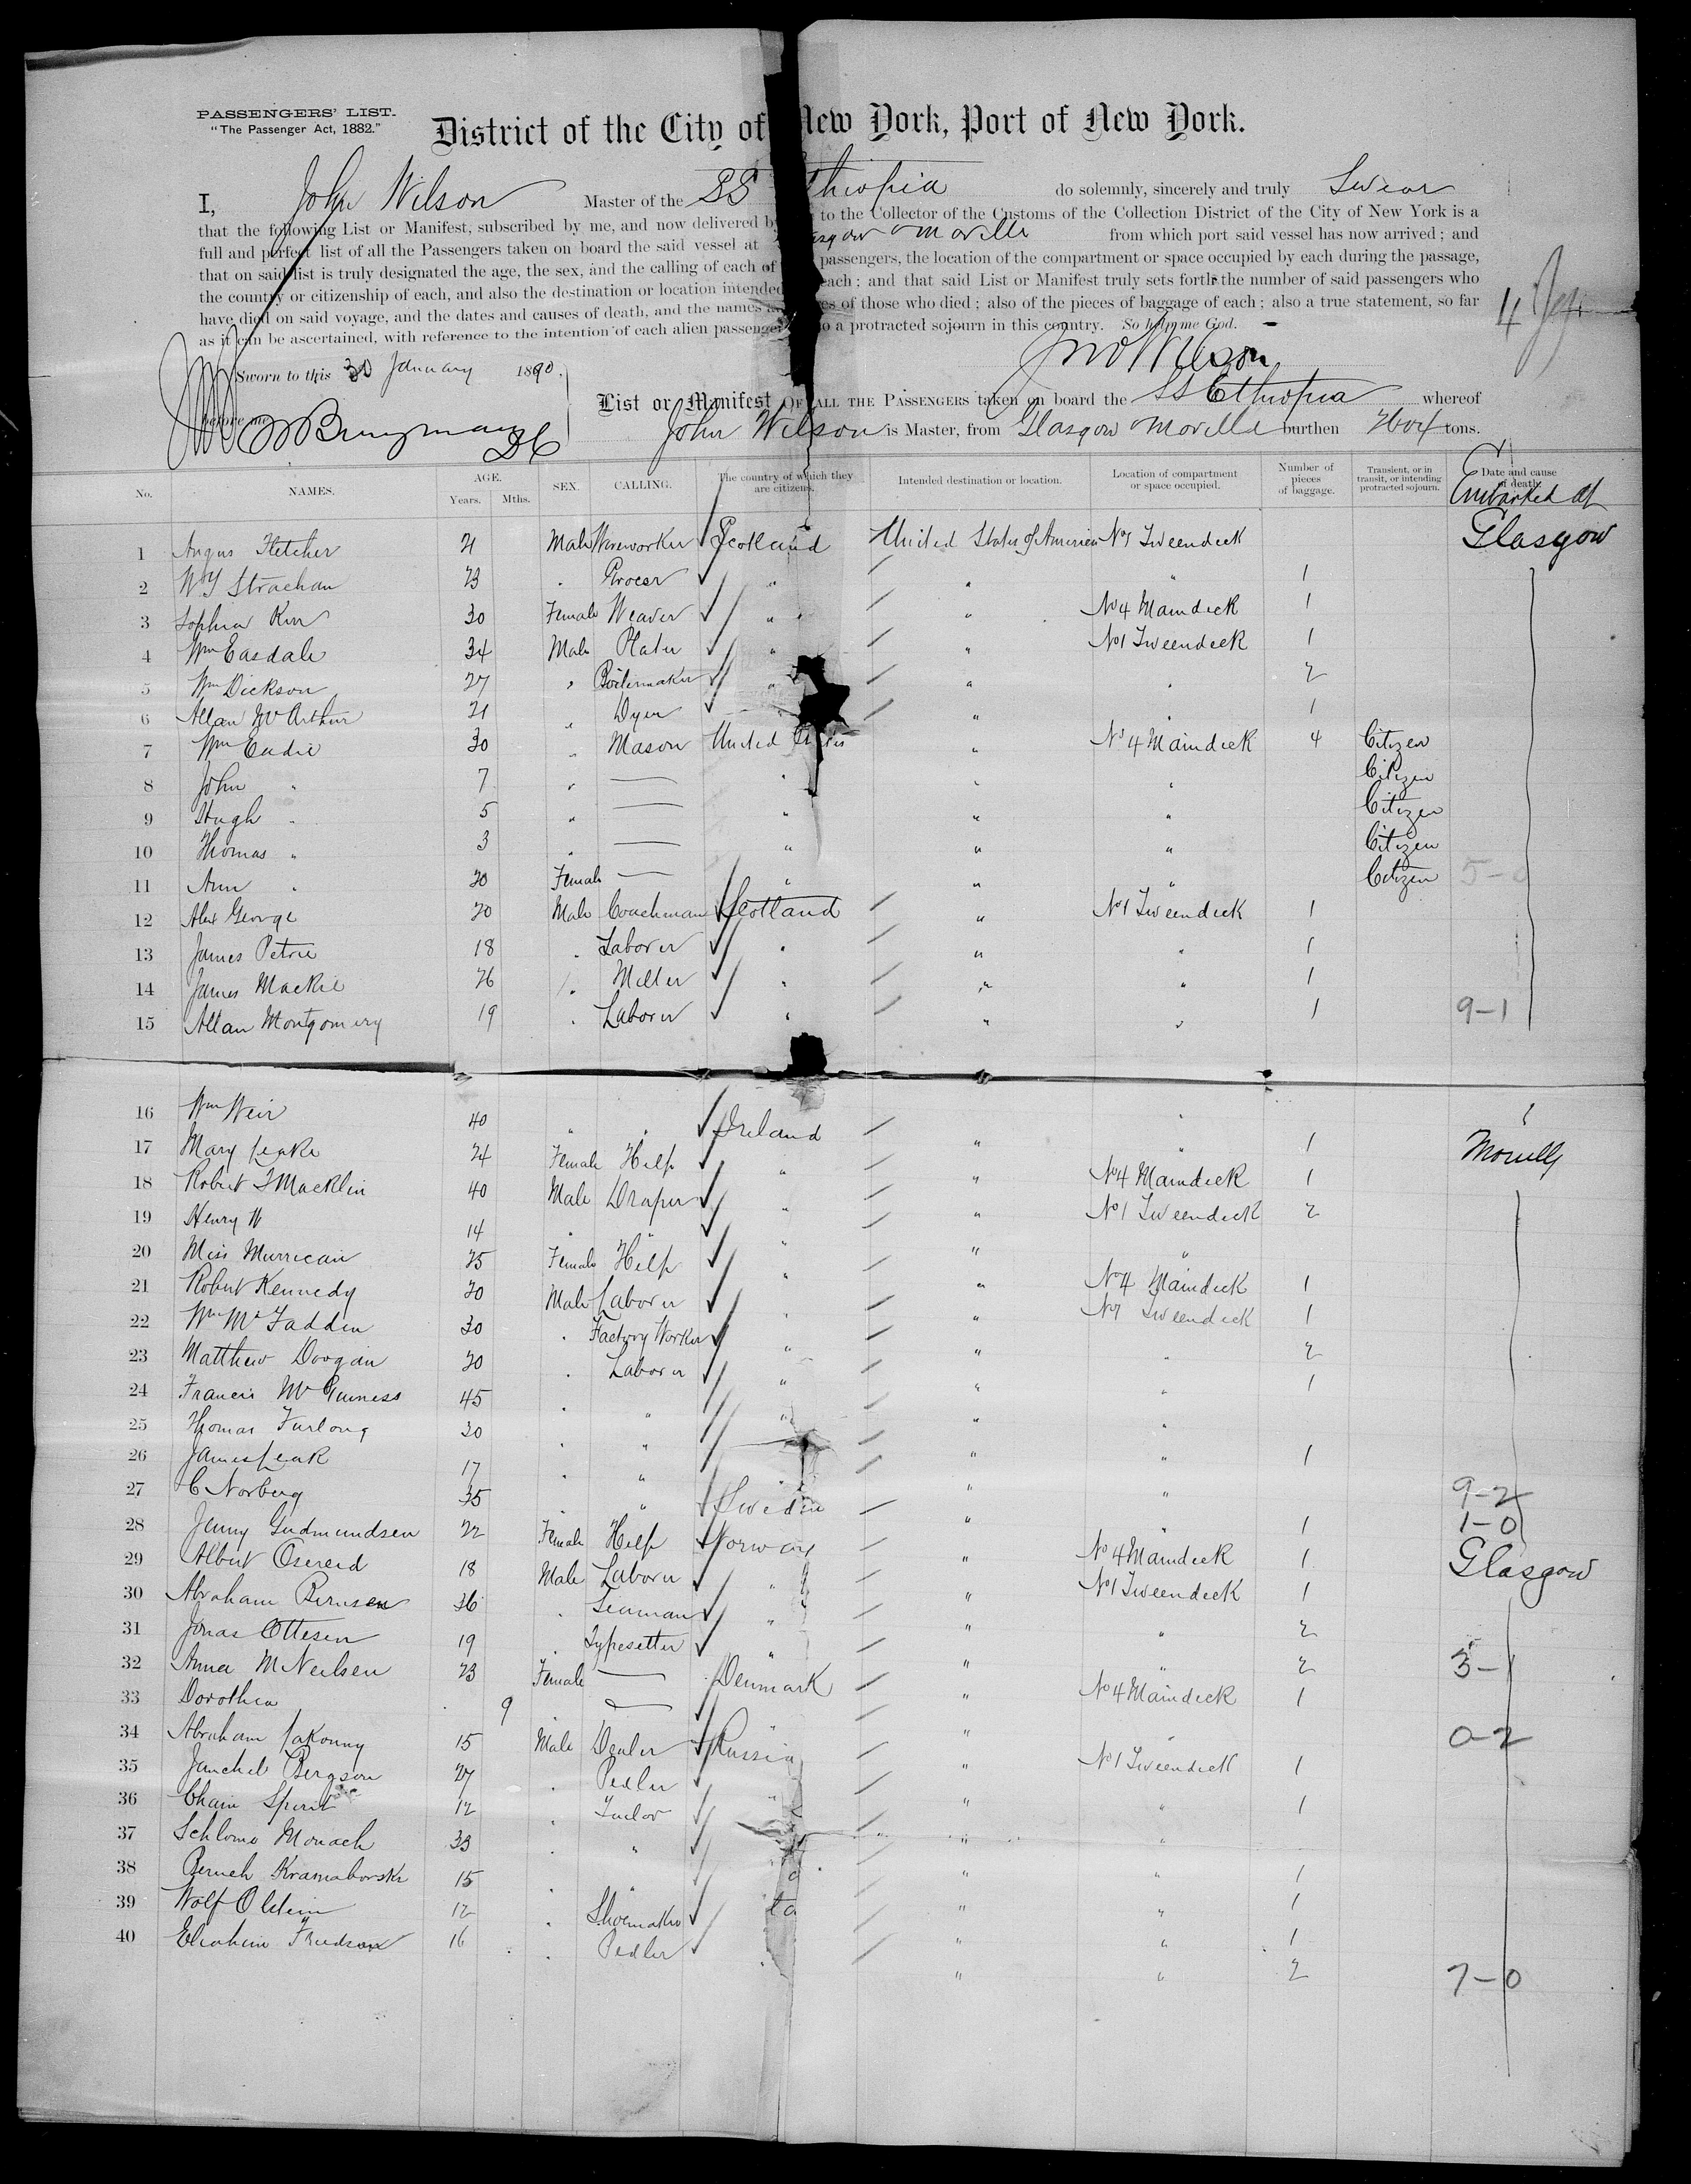 PASSENGERS' LIST.
"The Passenger Act, 1882."
District of the City of New York, Port of New York.
I, John Wilson Master of the SS Ethiopia do solemnly, sincerely and truly Swear
that the following List or Manifest, subscribed by me, and now delivered by to the Collector of the Customs of the Collection District of the City of New York is a
full and perfect list of all the Passengers taken on board the said vessel at Glasgow & Moville from which port said vessel has now arrived; and
that on said list is truly designated the age, the sex, and the calling of each of passengers, the location of the compartment or space occupied by each during the passage,
the country or citizenship of each, and also the destination or location intended each; and that said List or Manifest truly sets forth the number of said passengers who
have died on said voyage, and the dates and causes of death, and the names of those who died; also of the pieces of baggage of each; also a true statement, so far
as it can be ascertained, with reference to the intention of each alien passenger to a protracted sojourn in this country. So help me God.
Jno Wilson
Sworn to this 30 January 1890.
before me
List or Manifest OF ALL THE PASSENGERS taken on board the SS Ethiopia whereof
John Wilson is Master, from Glasgow & Moville burthen tons.
No. NAMES. AGE. Years. Mths. SEX. CALLING. The country of which they are citizens. Intended destination or location. Location of compartment or space occupied. Number of pieces of baggage. Transient, or in transit, or intending protracted sojourn. Date and cause of death.
Embarked at
1 Angus Fletcher 21 Male Wireworker Scotland United States of America No 1 Tweendeck Glasgow
2 Wm Strachan 23 " Grocer " " " 1
3 Sophia Kerr 30 Female Weaver " " No 4 Maindeck 1
4 Wm Easdale 34 Male Plater " " No 1 Tweendeck 1
5 Wm Dickson 27 " Boilermaker " " " 2
6 Allan McArthur 21 " Dyer " " 1
7 Wm Eadie 30 " Mason United States " No 4 Maindeck 4 Citizen
8 John " 7 " — " " " Citizen
9 Hugh " 5 " — " " " Citizen
10 Thomas " 3 " — " " " Citizen
11 Ann " 20 Female — " " " Citizen 5-0
12 Alex George 20 Male Coachman Scotland " No 1 Tweendeck 1
13 James Petrie 18 " Laborer " " " 1
14 James Mackie 26 " " " " 1
15 Allan Montgomery 19 " Laborer " " " 1 9-1
16 Wm Weir 40 " " Ireland " " 1
17 Mary Leake 24 Female Help " " No 4 Maindeck 1 Moville
18 Robert J Macklin 40 Male Draper " " No 1 Tweendeck 2
19 Henry W 14 " " " " "
20 Miss Murrican 25 Female Help " " No 4 Maindeck 1
21 Robert Kennedy 20 Male Laborer " " No 1 Tweendeck 1
22 Wm McFadden 30 " Factory Worker " " " 2
23 Matthew Doogan 20 " Laborer " " " 1
24 Francis McGuiness 45 " " " " "
25 Thomas Furlong 20 " " " " " 1
26 James Leak 17 " " " " " 9-2
27 C Norberg 35 " " Sweden " " 1 1-0
28 Jenny Gudmundsen 22 Female Help Norway " No 4 Maindeck 1 Glasgow
29 Albert 18 Male Laborer " " No 1 Tweendeck 1
30 Abraham Bernsen 36 " Seaman " " " 2
31 Jonas Ottesen 19 " Typesetter " " " 2 3-1
32 Anna M Neilsen 23 Female — Denmark " No 4 Maindeck 1
33 Dorothea 9 " — " " " 0-2
34 Abraham 15 Male Dealer Russia " No 1 Tweendeck 1
35 Janchel Bergson 27 " Pedler " " " 1
36 Chaim 12 " " " "
37 Schlomo Monach 33 " " " " 1
38 Beruch 15 " " " " 1
39 Wolf 12 " Shoemaker " " 1
40 16 " Pedler " " 2 7-0